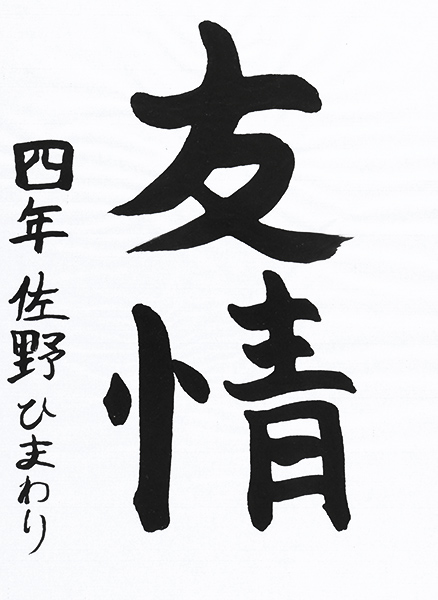 友情
四年 佐野ひまわり